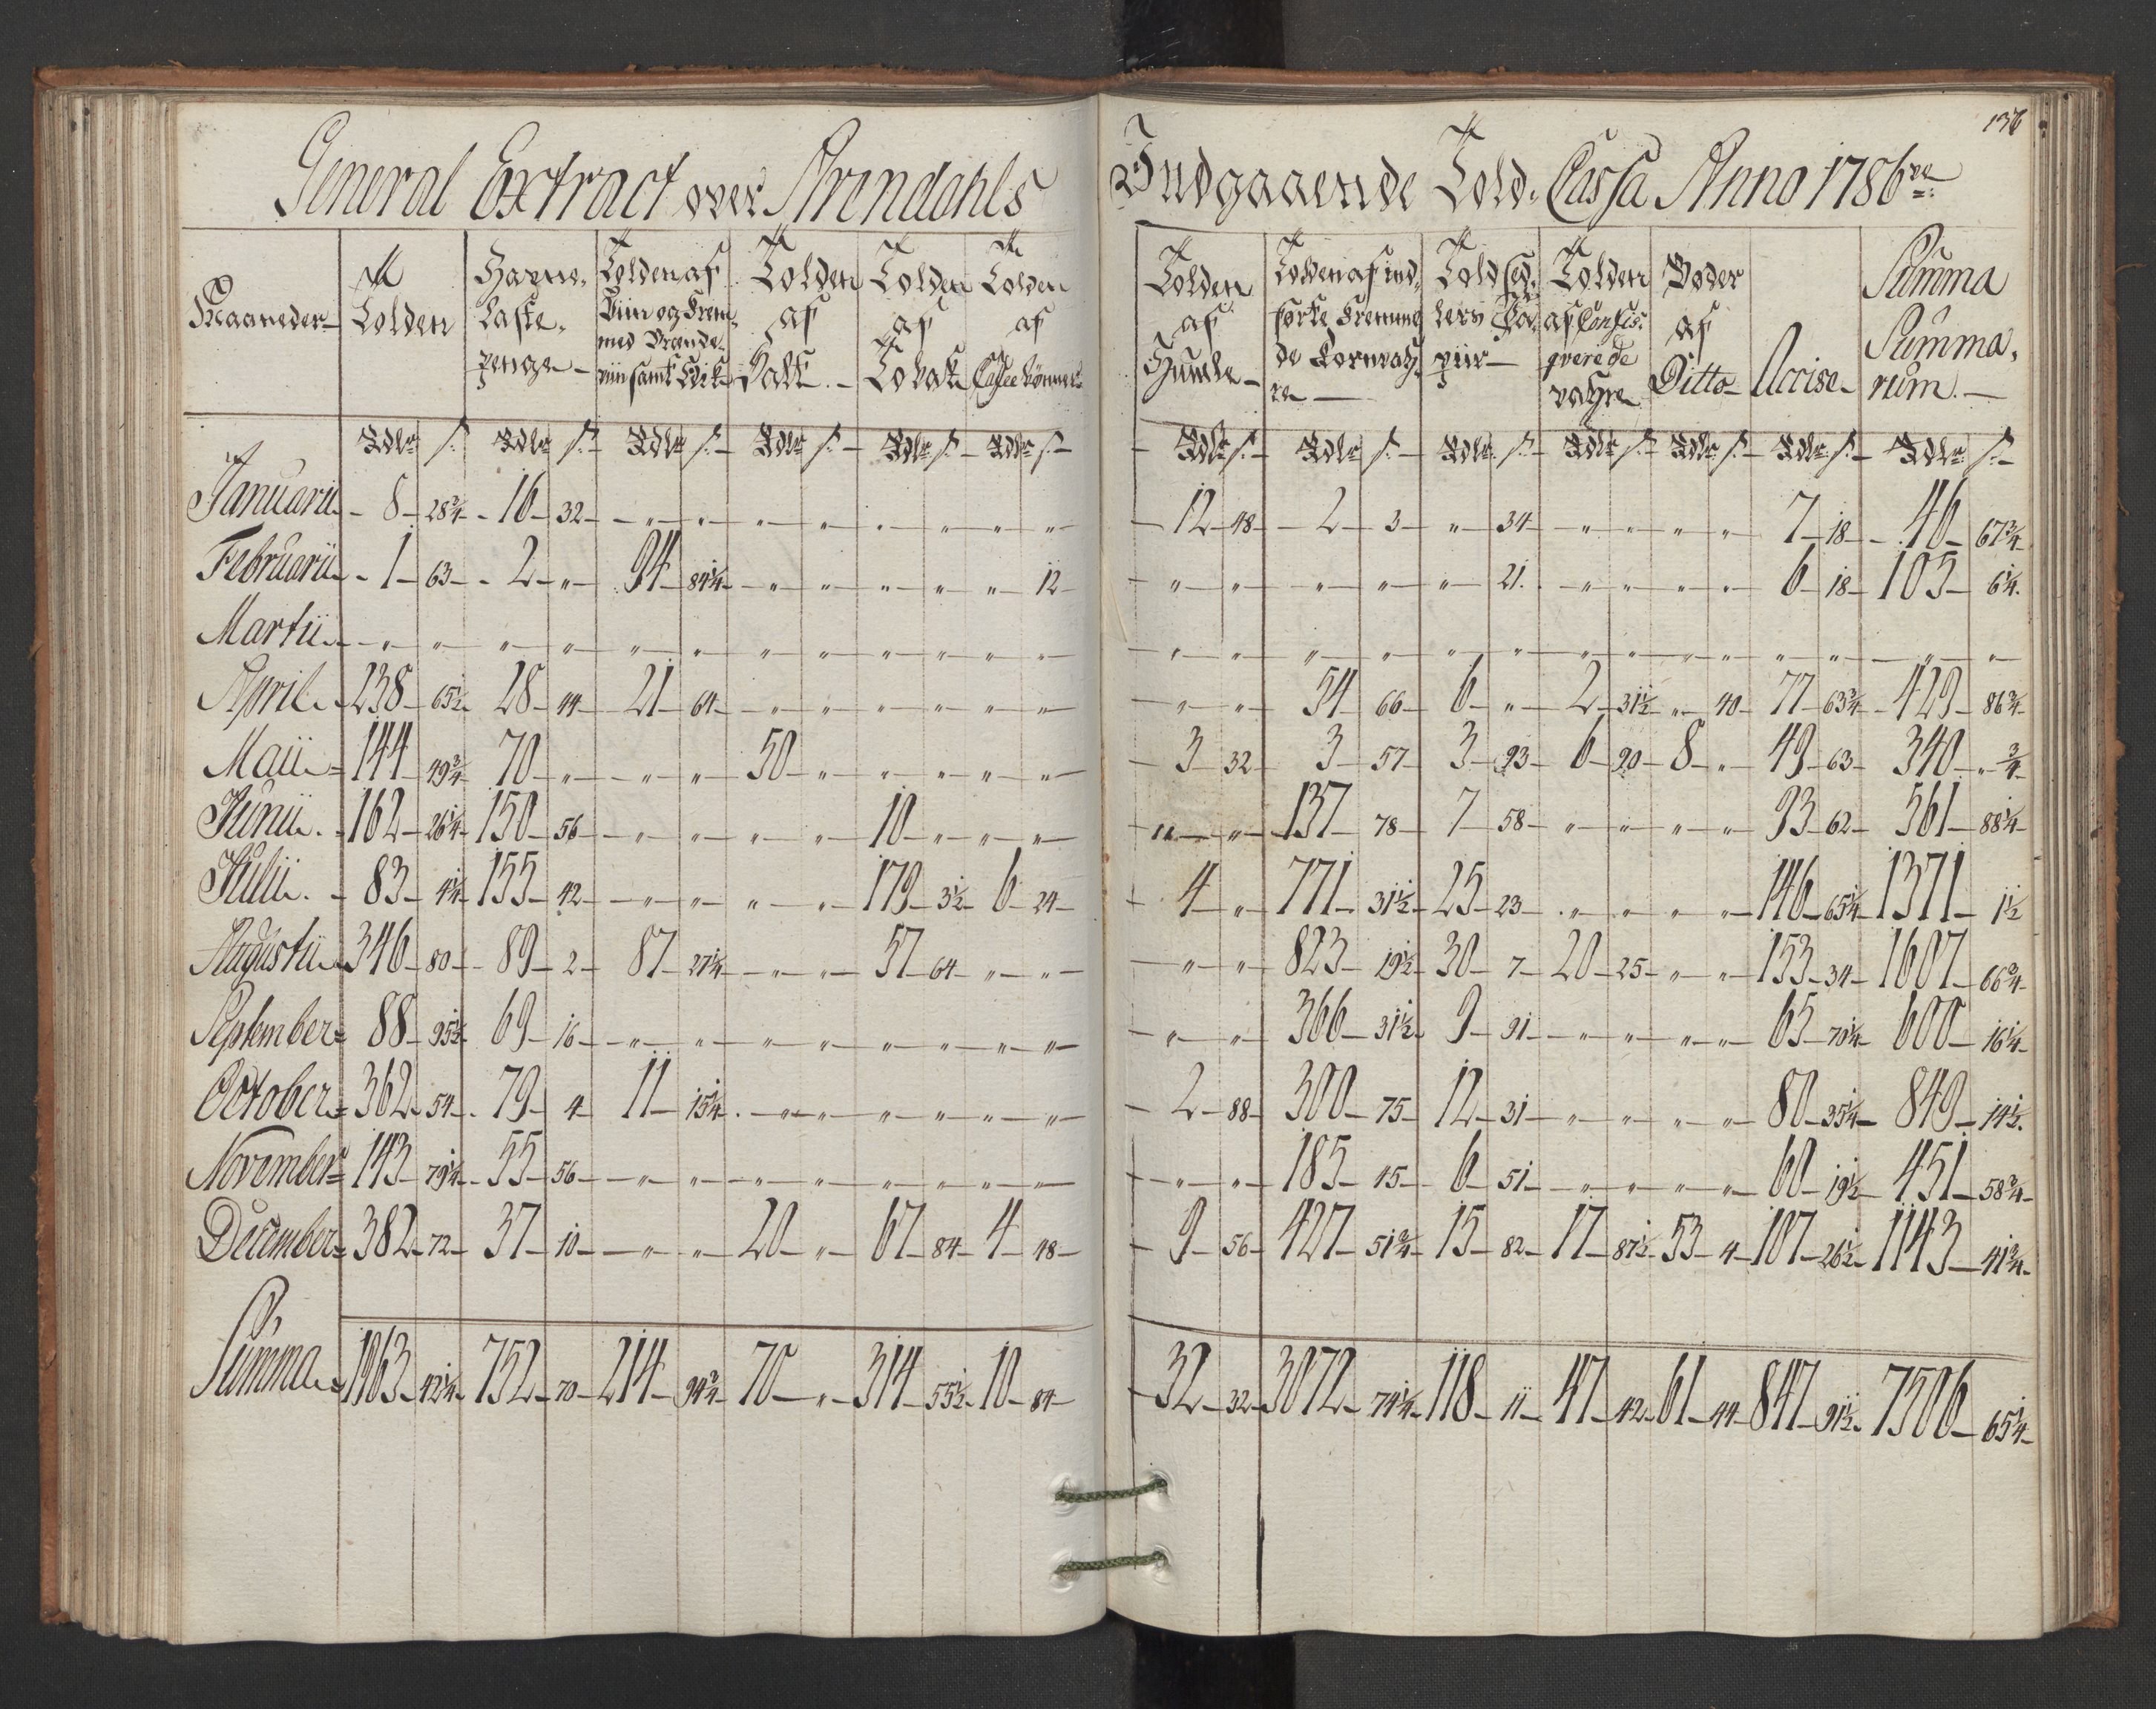 136
General Extract over Arendahls Indgaaende Told. Cassa Anno 1786
Maaneder Tolden Havne Laste penge Tolden af Viin og Frem med Brænde viin samt Edik Tolden af Salt Tolden af Tobak Tolden af Caffee bønner Tolden af Humle Tolden af ind førte Fremme de Kornvah re Told sed lers Pa piir Tolden af Confis qverede vahre Bøder af Ditto Accise Summa Summa rum.
Rdlr ß Rdlr ß Rdlr ß Rdlr ß Rdlr ß Rdlr ß Rdlr ß Rdlr ß Rdlr ß Rdlr ß Rdlr ß Rdlr ß Rdlr ß
Januarii 8 28¾ 16 32 " " " " " " " " 12 48 2 3 " 34 " " " " 7 18 46 67¾
Februarii 1 63 2 " 94 84¼ " " " " " 12 " " " " " 21 " " " " 6 18 105 6¼
Martii " " " " " " " " " " " " " " " " " " " " " " " " " "
April 238 65½ 28 44 21 64 " " " " " " " " 54 66 6 " 2 31½ " 40 77 63¾ 429 86¾
Maii 144 49¾ 70 " " " 50 " " " " " 3 32 3 57 3 93 6 90 8 " 49 63 340 " ¾
Junii 162 26¼ 150 56 " " " " 10 " " " " " 137 78 7 58 " " " " 93 62 561 88¼
Julii 83 4¼ 155 42 " " " " 179 3½ 6 24 4 " 771 31½ 25 23 " " " " 146 65¼ 1371 1½
Augustii 346 80 89 2 87 27¼ " " 57 64 " " " " 823 19½ 30 7 20 25 " " 153 34 1607 66¾
September 88 95½ 69 16 " " " " " " " " " " 366 31½ 9 91 " " " " 65 70¼ 600 16¼
October 362 54 79 4 11 15¼ " " " " " " 2 88 300 75 12 31 " " " " 80 35¼ 849 14½
November 143 79¼ 55 56 " " " " " " " " " " 185 45 6 51 " " " " 60 19½ 451 58¾
December 382 72 37 10 " " 20 " 67 84 4 48 9 56 427 51¾ 15 82 17 87½ 53 4 107 26½ 1143 41¾
Summa 1963 42¼ 752 70 214 94¾ 70 " 314 55½ 10 84 32 32 3072 74¼ 118 11 47 42 61 44 847 91½ 7506 65¼